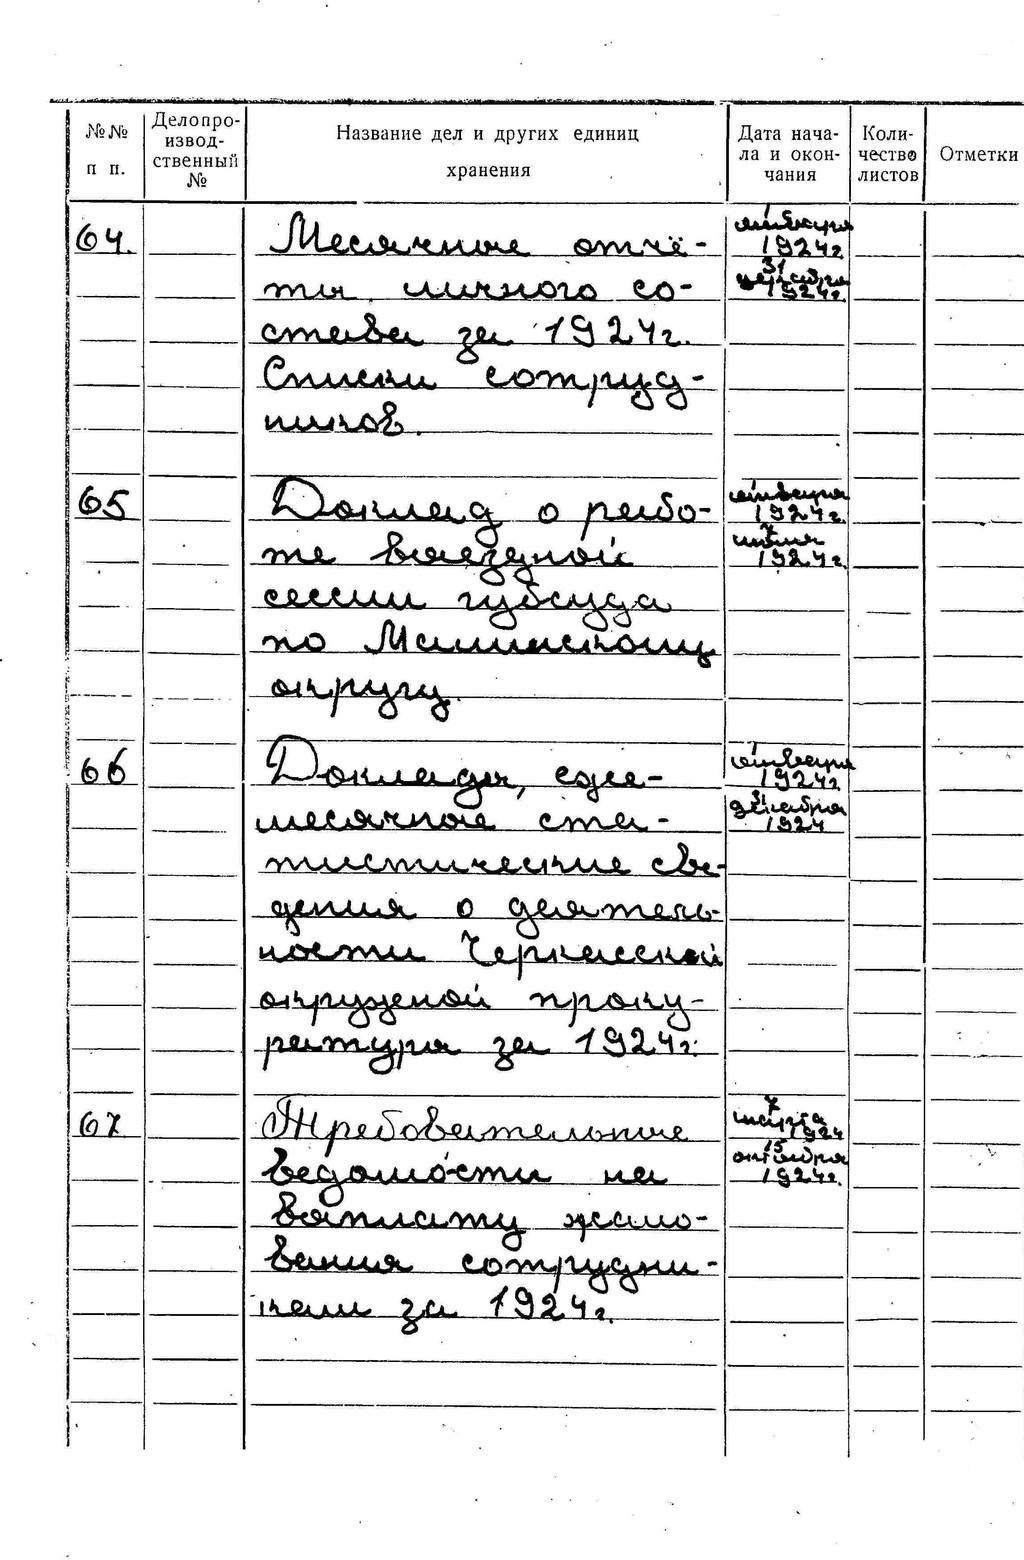 №№ п п.
Делопроизвод-ственный №
Название дел и других единиц хранения
Дата нача-ла и окон-чания
Коли-чество листов
Отметки
64.
Месячные отчё-
ты личного со-
става за 1924г.
Списки сотруд-
ников.
1
января
1924г.
31
декабря
1924г.
65
Доклад о рабо-
те выездной
сессии губсуда
по
округу.
января
1924г.
7
1924г.
66
Доклады, еже-
месячные ста-
тистические све-
дения о деятель-
ности Черкасской
окружной проку-
ратуры за 1924г.
1
января
1924г.
31
декабря
1924
67
Требовательные
ведомости на
выплату жало-
вания сотрудни-
кам за 1924г.
7
марта
1924
15
октября
1924г.